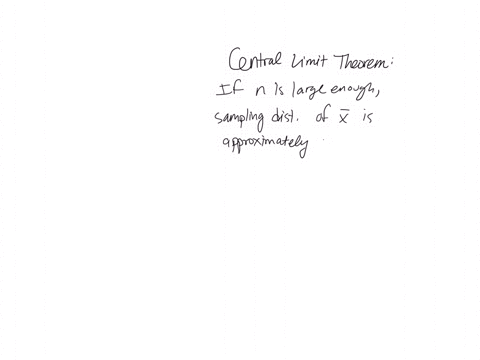 Central Limit Theorem:
If n is large enough,
sampling dist. of x̄ is
approximately